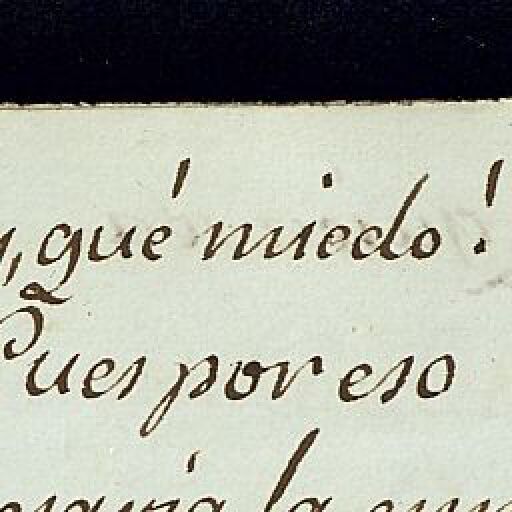 , qué miedo!
Pues por eso
la